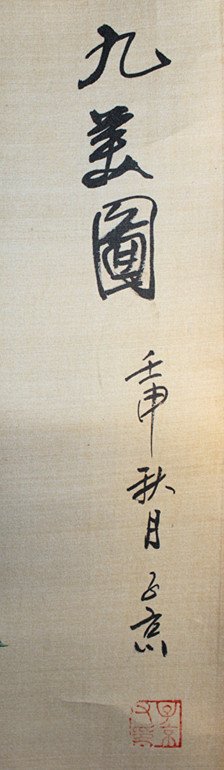 九美圖
壬申秋月子京